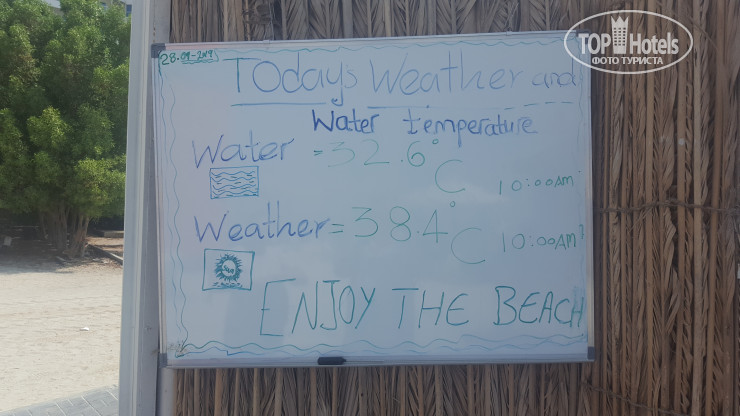 TOP Hotels
ФОТО ТУРИСТА
Todays Weather and
Water temperature
Water = 32.6°C 10:00AM
Weather = 38.4°C 10:00AM
ENJOY THE BEACH